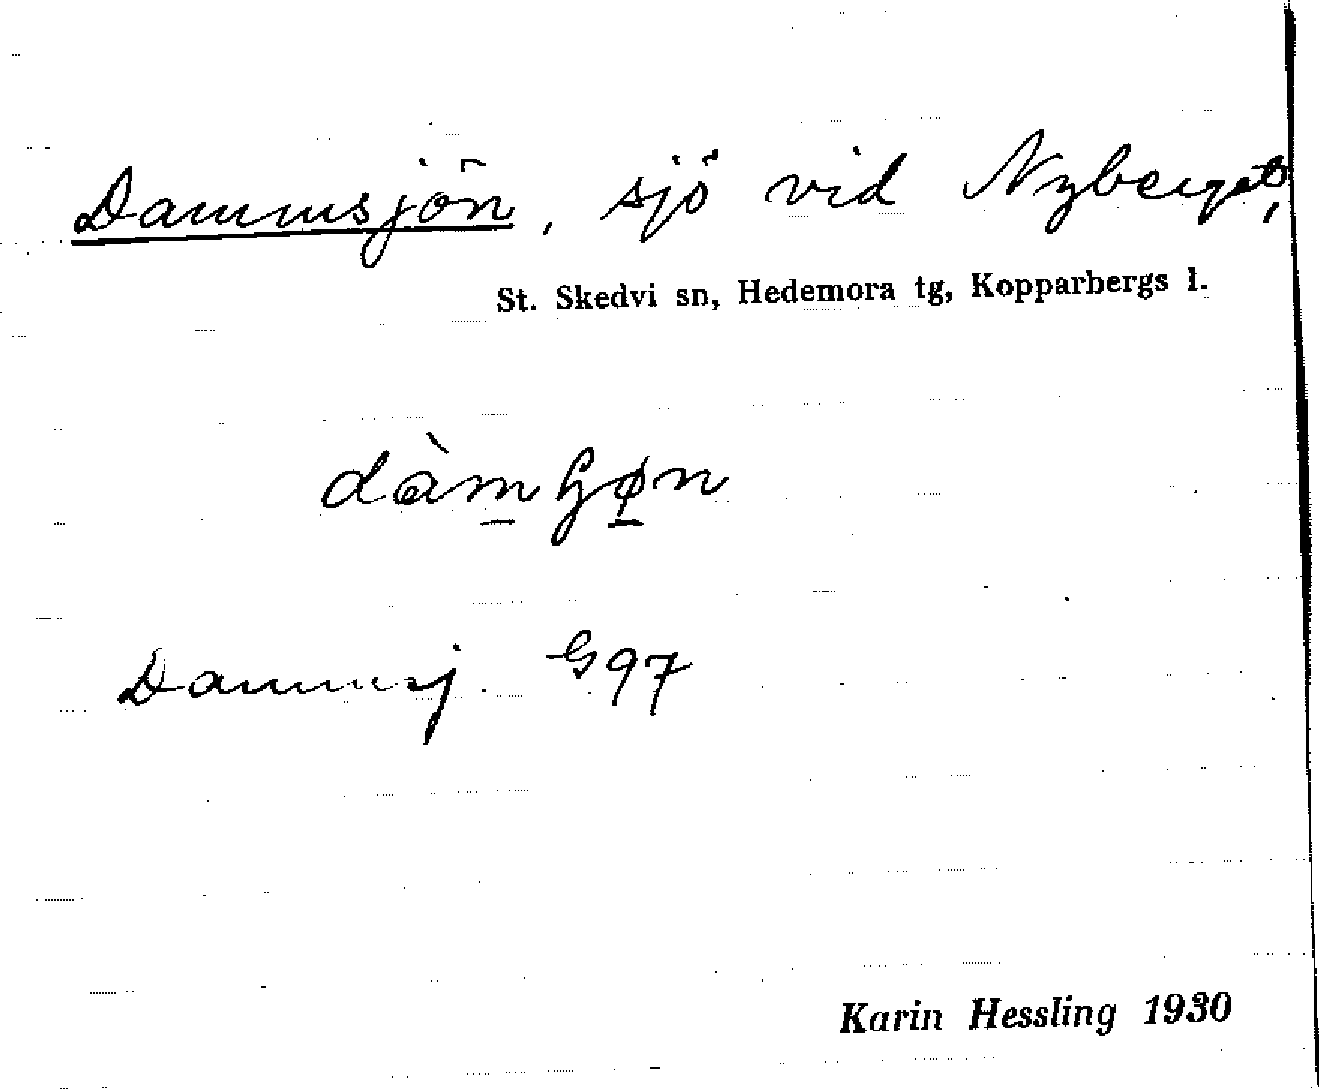 Dammsjön, sjö vid Nyberget,
St. Skedvi sn, Hedemora tg, Kopparbergs l.
Dammsj. G97
Karin Hessling 1930